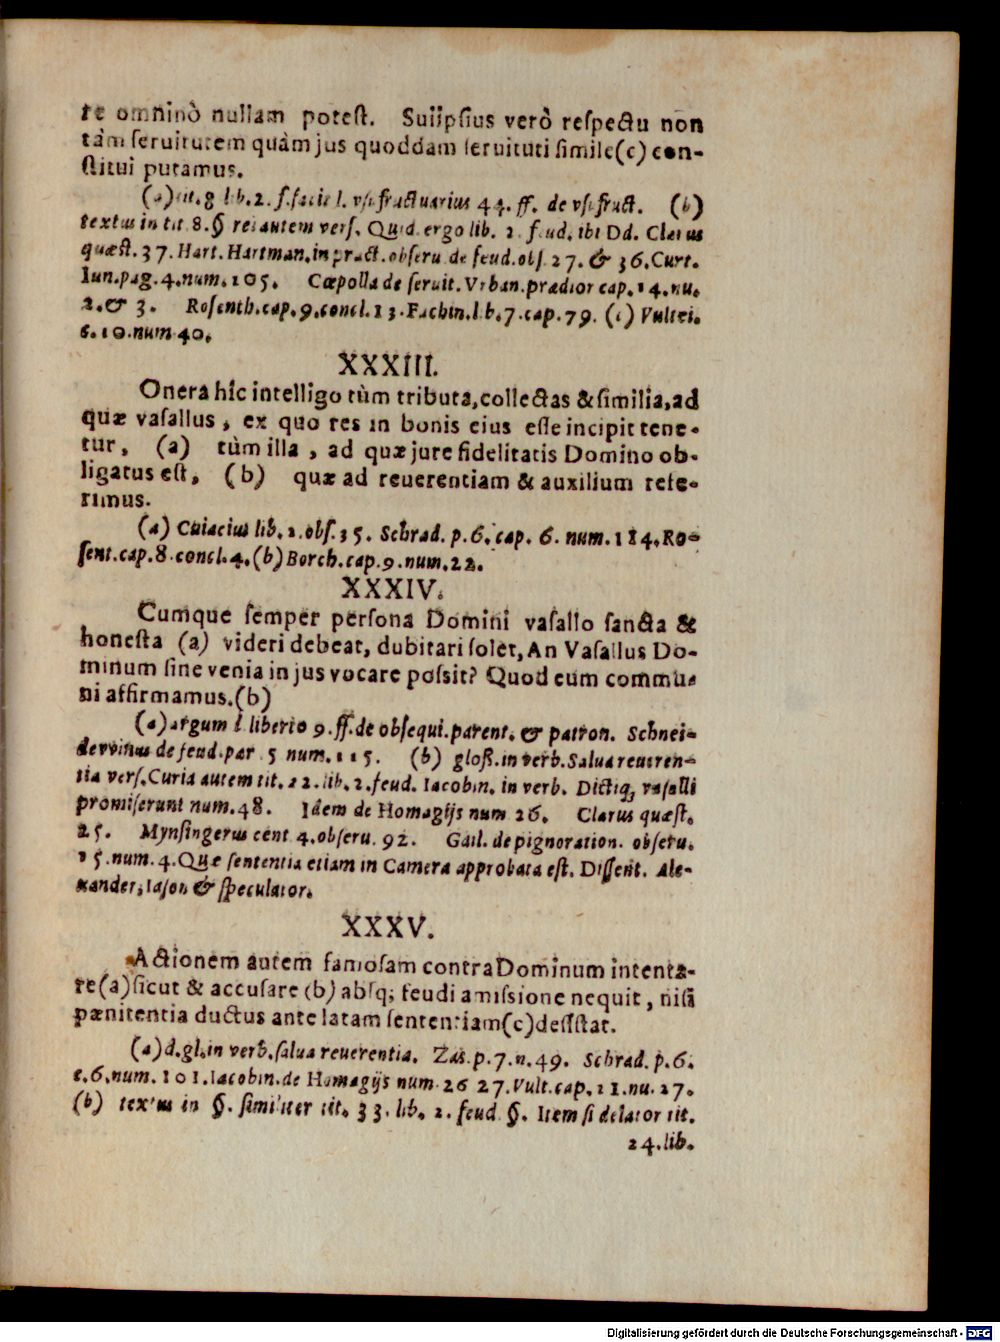 te omninò nullam potest. Suiipsius verò respectu non
tàm seruitutem quàm jus quoddam seruituti simile(c) con-
stitui putamus.
(a) tit. 8 lib. 2. s. sacie l. vsufructuarius 44. ff. de vsufruct. (b)
textus in tit. 8. § rei autem vers. Quid ergo lib. 2 feud. ibi Dd. Clarus
quæst. 37. Hart. Hartman. in pract. obseru. de feud. obs. 27. & 36. Curt.
Iun. pag. 4. num. 105. Cæpolla de seruit. Vrban. prædior cap. 14. nu.
2. & 3. Rosenth. cap. 9. concl. 13. Fachin. lib. 7. cap. 79. (c) Vultei.
c. 10. num 40.
XXXIII.
Onera hîc intelligo tùm tributa, collectas & similia, ad
quæ vasallus, ex quo res in bonis eius esse incipit tene-
tur, (a) tùm illa, ad quæ jure fidelitatis Domino ob-
ligatus est, (b) quæ ad reuerentiam & auxilium refe-
rimus.
(a) Cuiacius lib. 2. obs. 35. Schrad. p. 6. cap. 6. num. 184. Ro-
sent. cap. 8. concl. 4. (b) Borch. cap. 9. num. 22.
XXXIV.
Cumque semper persona Domini vasallo sancta &
honesta (a) videri debeat, dubitari solet, An Vasallus Do-
minum sine venia in jus vocare possit? Quod cum commu-
ni affirmamus. (b)
(a) argum l liberto 9. ff. de obsequi. parent. & patron. Schnei-
dewinus de feud. par 5 num. 115. (b) gloß. in verb. Salua reueren-
tia vers. Curia autem tit. 22. lib. 2. feud. Iacobin. in verb. Dictiq; vasalli
promiserunt num. 48. Idem de Homagijs num 26. Clarus quæst.
25. Mynsingerus cent 4. obseru. 92. Gail. de pignoration. obseru.
15. num. 4. Quæ sententia etiam in Camera approbata est. Dissent. Ale-
xander, Iason & speculator.
XXXV.
Actionem autem famosam contra Dominum intenta-
re (a) sicut & accusare (b) absq; feudi amissione nequit, nisi
pænitentia ductus ante latam sententiam (c) desistat.
(a) d. gl. in verb. salua reuerentia. Zas. p. 7. n. 49. Schrad. p. 6.
c. 6. num. 101. Iacobin. de Homagijs num. 26 27. Vult. cap. 11. nu. 27.
(b) textus in §. similiter tit. 33. lib. 2. feud §. Item si delator tit.
24. lib.
Digitalisierung gefördert durch die Deutsche Forschungsgemeinschaft - DFG